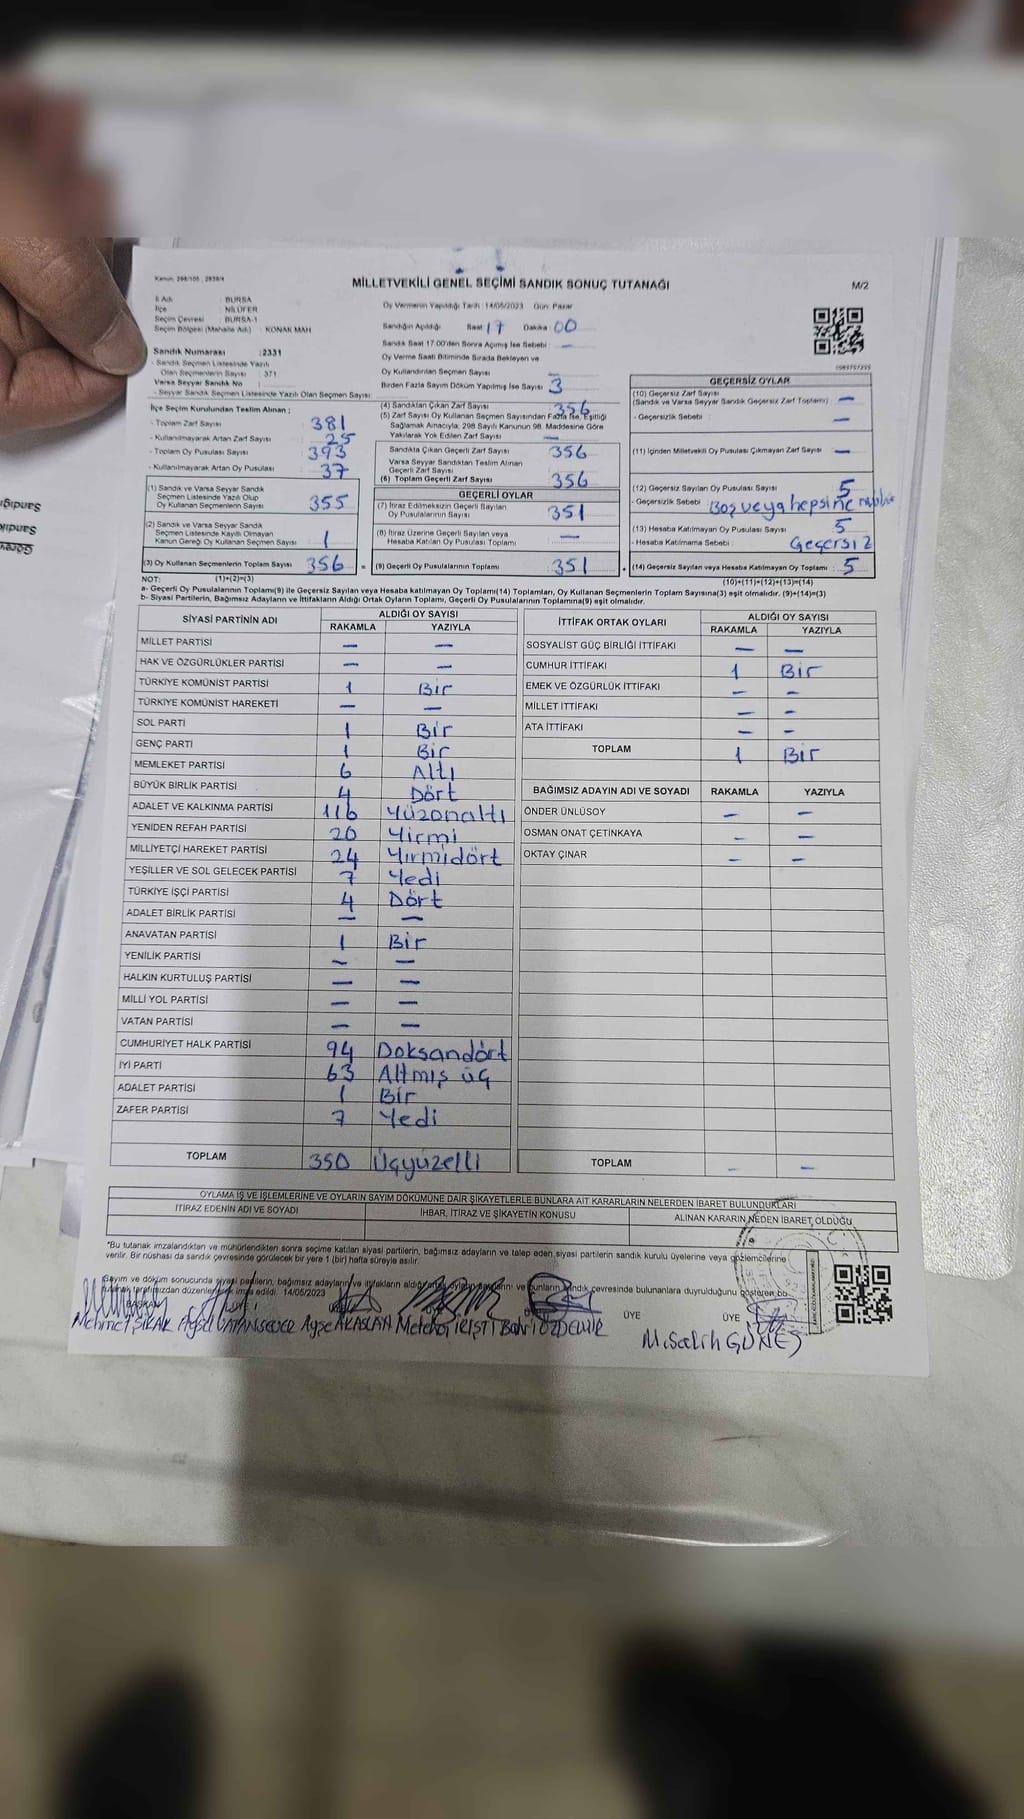 Kanun: 298/105, 2839/4
MİLLETVEKİLİ GENEL SEÇİMİ SANDIK SONUÇ TUTANAĞI
M/2
İl Adı : BURSA
İlçe : NİLÜFER
Seçim Çevresi : BURSA-1
Seçim Bölgesi (Mahalle Adı) : KONAK MAH
Sandık Numarası :2331
- Sandık Seçmen Listesinde Yazılı
Olan Seçmenlerin Sayısı : 371
Varsa Seyyar Sandık No :
- Seyyar Sandık Seçmen Listesinde Yazılı Olan Seçmen Sayısı
Oy Vermenin Yapıldığı Tarih :14/05/2023 Gün: Pazar
Sandığın Açıldığı Saat 17 Dakika 00
Sandık Saat 17.00'den Sonra Açımış İse Sebebi : —
Oy Verme Saati Bitiminde Sırada Bekleyen ve
Oy Kullandırılan Seçmen Sayısı —
Birden Fazla Sayım Döküm Yapılmış İse Sayısı 3
İlçe Seçim Kurulundan Teslim Alınan ;
- Toplam Zarf Sayısı 381
- Kullanılmayarak Artan Zarf Sayısı 25
- Toplam Oy Pusulası Sayısı 393
- Kullanılmayarak Artan Oy Pusulası 37
(1) Sandık ve Varsa Seyyar Sandık
Seçmen Listesinde Yazılı Olup
Oy Kullanan Seçmenlerin Sayısı 355
(2) Sandık ve Varsa Seyyar Sandık
Seçmen Listesinde Kayıtlı Olmayan
Kanun Gereği Oy Kullanan Seçmen Sayısı 1
(3) Oy Kullanan Seçmenlerin Toplam Sayısı 356 =
(4) Sandıktan Çıkan Zarf Sayısı 356
(5) Zarf Sayısı Oy Kullanan Seçmen Sayısından Fazla İse, Eşitliği
Sağlamak Amacıyla; 298 Sayılı Kanunun 98. Maddesine Göre
Yakılarak Yok Edilen Zarf Sayısı —
Sandıkta Çıkan Geçerli Zarf Sayısı 356
Varsa Seyyar Sandıktan Teslim Alınan
Geçerli Zarf Sayısı
(6) Toplam Geçerli Zarf Sayısı 356
GEÇERLİ OYLAR
(7) İtiraz Edilmeksizin Geçerli Sayılan
Oy Pusulalarının Sayısı 351
(8) İtiraz Üzerine Geçerli Sayılan veya
Hesaba Katılan Oy Pusulası Toplamı —
(9) Geçerli Oy Pusulalarının Toplamı 351
GEÇERSİZ OYLAR
(10) Geçersiz Zarf Sayısı
(Sandık ve Varsa Seyyar Sandık Geçersiz Zarf Toplamı) —
- Geçersizlik Sebebi : —
(11) İçinden Milletvekili Oy Pusulası Çıkmayan Zarf Sayısı —
(12) Geçersiz Sayılan Oy Pusulası Sayısı 5
- Geçersizlik Sebebi : Boş veya hepsine
(13) Hesaba Katılmayan Oy Pusulası Sayısı 5
- Hesaba Katılmama Sebebi : Geçersiz
(14) Geçersiz Sayılan veya Hesaba Katılmayan Oy Toplamı 5
NOT: (1)+(2)=(3)
(10)+(11)+(12)+(13)=(14)
a- Geçerli Oy Pusulalarının Toplamı(9) ile Geçersiz Sayılan veya Hesaba katılmayan Oy Toplamı(14) Toplamları, Oy Kullanan Seçmenlerin Toplam Sayısına(3) eşit olmalıdır. (9)+(14)=(3)
b- Siyasi Partilerin, Bağımsız Adayların ve İttifakların Aldığı Ortak Oyların Toplamı, Geçerli Oy Pusulalarının Toplamına(9) eşit olmalıdır.
SİYASİ PARTİNİN ADI ALDIĞI OY SAYISI
RAKAMLA YAZIYLA
MİLLET PARTİSİ — —
HAK VE ÖZGÜRLÜKLER PARTİSİ — —
TÜRKİYE KOMÜNİST PARTİSİ 1 Bir
TÜRKİYE KOMÜNİST HAREKETİ — —
SOL PARTİ 1 Bir
GENÇ PARTİ 1 Bir
MEMLEKET PARTİSİ 6 Altı
BÜYÜK BİRLİK PARTİSİ 4 Dört
ADALET VE KALKINMA PARTİSİ 116 Yüzonaltı
YENİDEN REFAH PARTİSİ 20 Yirmi
MİLLİYETÇİ HAREKET PARTİSİ 24 Yirmidört
YEŞİLLER VE SOL GELECEK PARTİSİ 7 Yedi
TÜRKİYE İŞÇİ PARTİSİ 4 Dört
ADALET BİRLİK PARTİSİ — —
ANAVATAN PARTİSİ 1 Bir
YENİLİK PARTİSİ — —
HALKIN KURTULUŞ PARTİSİ — —
MİLLİ YOL PARTİSİ — —
VATAN PARTİSİ — —
CUMHURİYET HALK PARTİSİ 94 Doksandört
İYİ PARTİ 63 Altmış üç
ADALET PARTİSİ 1 Bir
ZAFER PARTİSİ 7 Yedi
TOPLAM 350 Üçyüzelli
İTTİFAK ORTAK OYLARI ALDIĞI OY SAYISI
RAKAMLA YAZIYLA
SOSYALİST GÜÇ BİRLİĞİ İTTİFAKI — —
CUMHUR İTTİFAKI 1 Bir
EMEK VE ÖZGÜRLÜK İTTİFAKI — —
MİLLET İTTİFAKI — —
ATA İTTİFAKI — —
TOPLAM 1 Bir
BAĞIMSIZ ADAYIN ADI VE SOYADI RAKAMLA YAZIYLA
ÖNDER ÜNLÜSOY — —
OSMAN ONAT ÇETİNKAYA — —
OKTAY ÇINAR — —
TOPLAM — —
OYLAMA İŞ VE İŞLEMLERİNE VE OYLARIN SAYIM DÖKÜMÜNE DAİR ŞİKAYETLERLE BUNLARA AİT KARARLARIN NELERDEN İBARET BULUNDUKLARI
İTİRAZ EDENİN ADI VE SOYADI İHBAR, İTİRAZ VE ŞİKAYETİN KONUSU ALINAN KARARIN NEDEN İBARET OLDUĞU
*Bu tutanak imzalandıktan ve mühürlendikten sonra seçime katılan siyasi partilerin, bağımsız adayların ve talep eden siyasi partilerin sandık kurulu üyelerine veya gözlemcilerine
verilir. Bir nüshası da sandık çevresinde görülecek bir yere 1 (bir) hafta süreyle asılır.
Sayım ve döküm sonucunda siyasi partilerin, bağımsız adayların ve ittifakların aldığı ve bunların sandık çevresinde bulunanlara duyrulduğunu gösteren bu
tutanak tarafımızdan düzenlenerek imza edildi. 14/05/2023
BAŞKAN ÜYE ÜYE
Mehmet Ayşe Bahri ÖZDEMİR
M.Salih GÜNEŞ